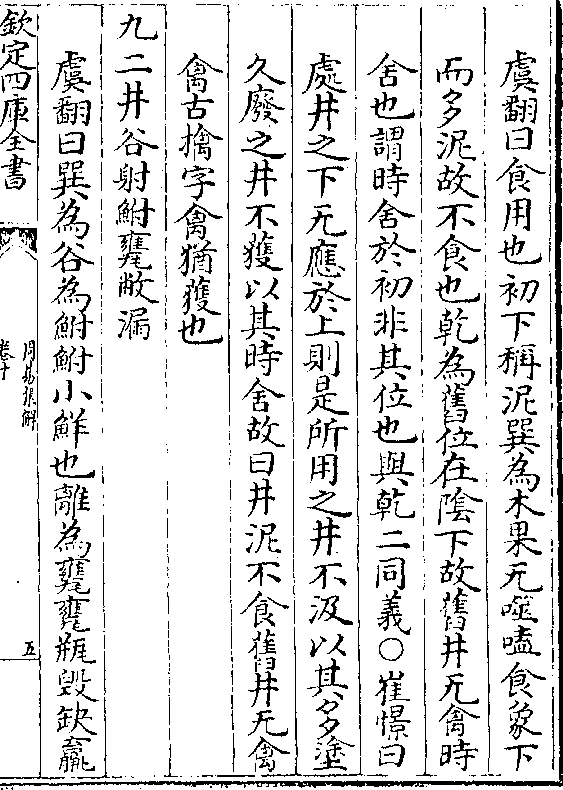 虞翻曰食用也初下稱泥巽為木果无噬嗑食象下
而多泥故不食也乾為舊位在陰下故舊井无禽時
舍也謂時舍於初非其位也與乾二同義○崔憬曰
處井之下无應於上則是所用之井不汲以其多塗
久廢之井不獲以其時舍故曰井泥不食舊井无禽
禽古擒字禽猶獲也
九二井谷射鮒甕敝漏
虞翻曰巽為谷為鮒鮒小鮮也離為甕甕瓶毀缺羸
欽定四庫全書
周易集解
卷十
五